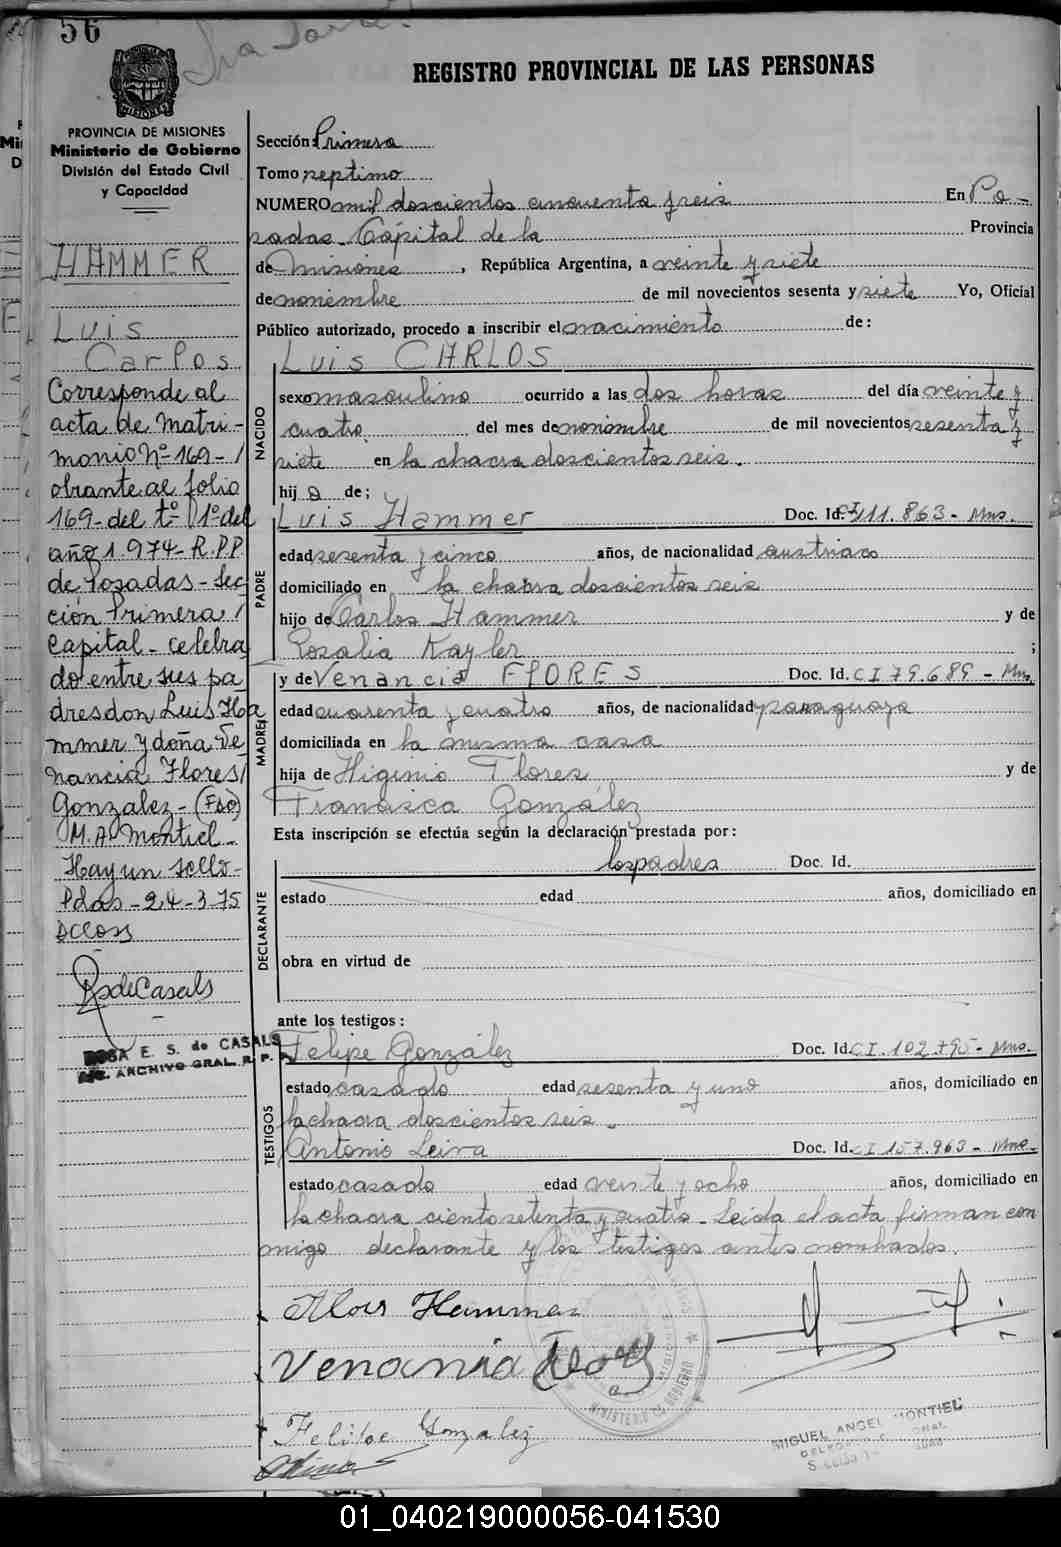 56
REGISTRO PROVINCIAL DE LAS PERSONAS
PROVINCIA DE MISIONES
Ministerio de Gobierno
División del Estado Civil
y Capacidad
HAMMER
Luis
Carlos
Corresponde al
acta de matri-
monio Nº 169-/
obrante al folio
169- del tº- 1º del
año 1.974- R.P.P.
de Posadas - Sec
ción Primera /
Capital - celebra
do entre sus pa
dres don Luis Ha
mmer y doña Ve
nancia Flores/
Gonzalez - (Fdo)
M.A. Montiel -
Hay un sello -
Pdas - 24-3-75
RSdeCasals
ROSA E. S. de CASALS
ARCHIVO GRAL. R. P. P.
Sección Primera
Tomo septimo
NUMERO mil doscientos cincuenta y seis En Po-
sadas Capital de la Provincia
de Misiones, República Argentina, a veinte y siete
de noviembre de mil novecientos sesenta y siete Yo, Oficial
Público autorizado, procedo a inscribir el nacimiento de:
NACIDO
Luis CARLOS
sexo masculino ocurrido a las dos horas del día veinte y
cuatro del mes de noviembre de mil novecientos sesenta y
siete en la chacra doscientos seis.
hij o de;
PADRE
Luis Hammer Doc. Id. 11.863 - Mns.
edad sesenta y cinco años, de nacionalidad austriaco
domiciliado en la chacra doscientos seis
hijo de Carlos Hammer y de
Rosalia Kayler ;
MADRE
y de Venancia FlORES Doc. Id. C I 79.689 - Mns.
edad cuarenta y cuatro años, de nacionalidad paraguaya
domiciliada en la misma casa
hija de Higinio Flores y de
Francisca González
Esta inscripción se efectúa según la declaración prestada por:
DECLARANTE
los padres Doc. Id.
estado edad años, domiciliado en
obra en virtud de
ante los testigos:
TESTIGOS
Felipe González Doc. Id. C I. 102.795 - Mns.
estado casado edad sesenta y uno años, domiciliado en
la chacra doscientos seis.
Antonio Leiva Doc. Id. C I 157.963 - Mns.
estado casado edad veinte y ocho años, domiciliado en
la chacra ciento setenta y cuatro - Leida el acta firman con
migo declarante y los testigos antes nombrados.
Alois Hammer
Venancia Flores
Felipe Gonzalez
MINISTERIO DE GOBIERNO
MIGUEL ANGEL MONTIEL
01_040219000056-041530